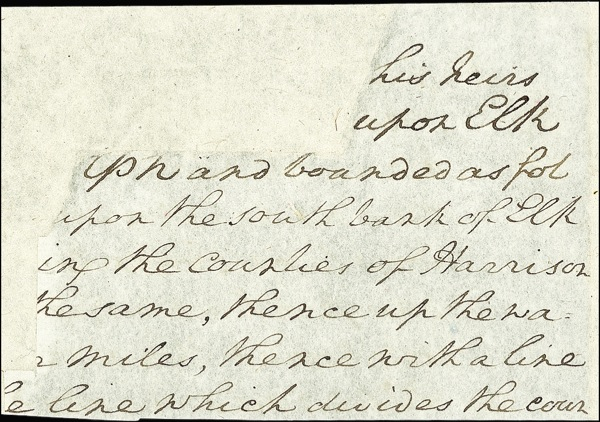 his heirs
upon Elk
and bounded as fol
upon the south bank of Elk
ing the counties of Harrison
the same, thence up the wa-
miles, thence with a line
line which divides the coun